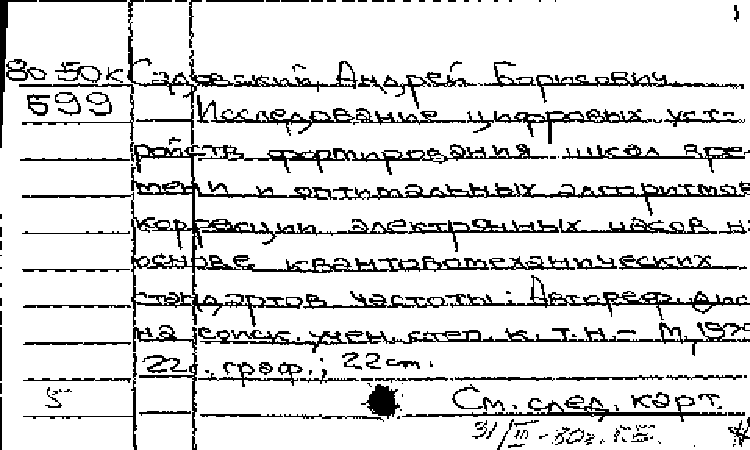 80-50к Садовский, Андрей Борисович
599 Исследование цифровых уст-
ройств формирования шкал вре-
мени и оптимальных алгоритмов
коррекции электронных часов на
основе квантовомеханических
стандартов частоты: Автореф. дис.
на соиск. учен. степ. к. т. н. - М, 1979
22с. граф.; 22 см.
5 См. след. карт.
31/III-80г.